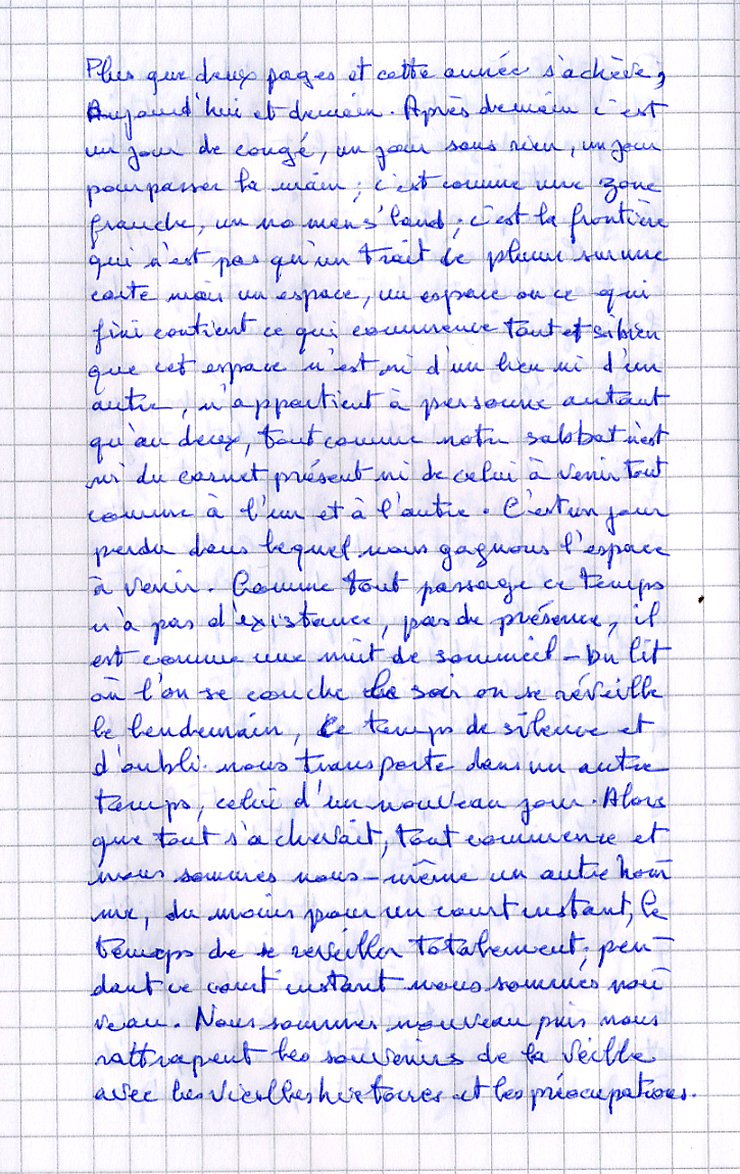 Plus que deux pages et cette année s'achève,
Aujourd'hui et demain. Après demain c'est
un jour de congé, un jour sans rien, un jour
pour passer la main ; c'est comme une zone
franche, un no mans'land ; c'est la frontière
qui n'est pas qu'un trait de plume sur une
carte mais un espace, un espace ou ce qui
fini contient ce qui commence tout et si bien
que cet espace n'est ni d'un lieu ni d'un
autre, n'appartient à personne autant
qu'au deux, tout comme notre sabbat n'est
ni du carnet présent ni de celui à venir tout
comme à l'un et à l'autre. C'est un jour
perdu dans lequel nous gagnons l'espace
à venir. Comme tout passage ce temps
n'a pas d'existance, pas de présence, il
est comme une nuit de sommeil - Du lit
où l'on se couche le soir on se réveille
le lendemain, ce temps de silence et
d'oubli nous transporte dans un autre
temps, celui d'un nouveau jour. Alors
que tout s'achevait, tout commence et
nous sommes nous-même un autre hom
me, du moins pour un court instant, le
temps de se reveiller totalement ; pen-
dant ce court instant nous sommes nou
veau. Nous sommes nouveau puis nous
rattrapent les souvenirs de la veille
avec les vieilles histoires et les préocupations.